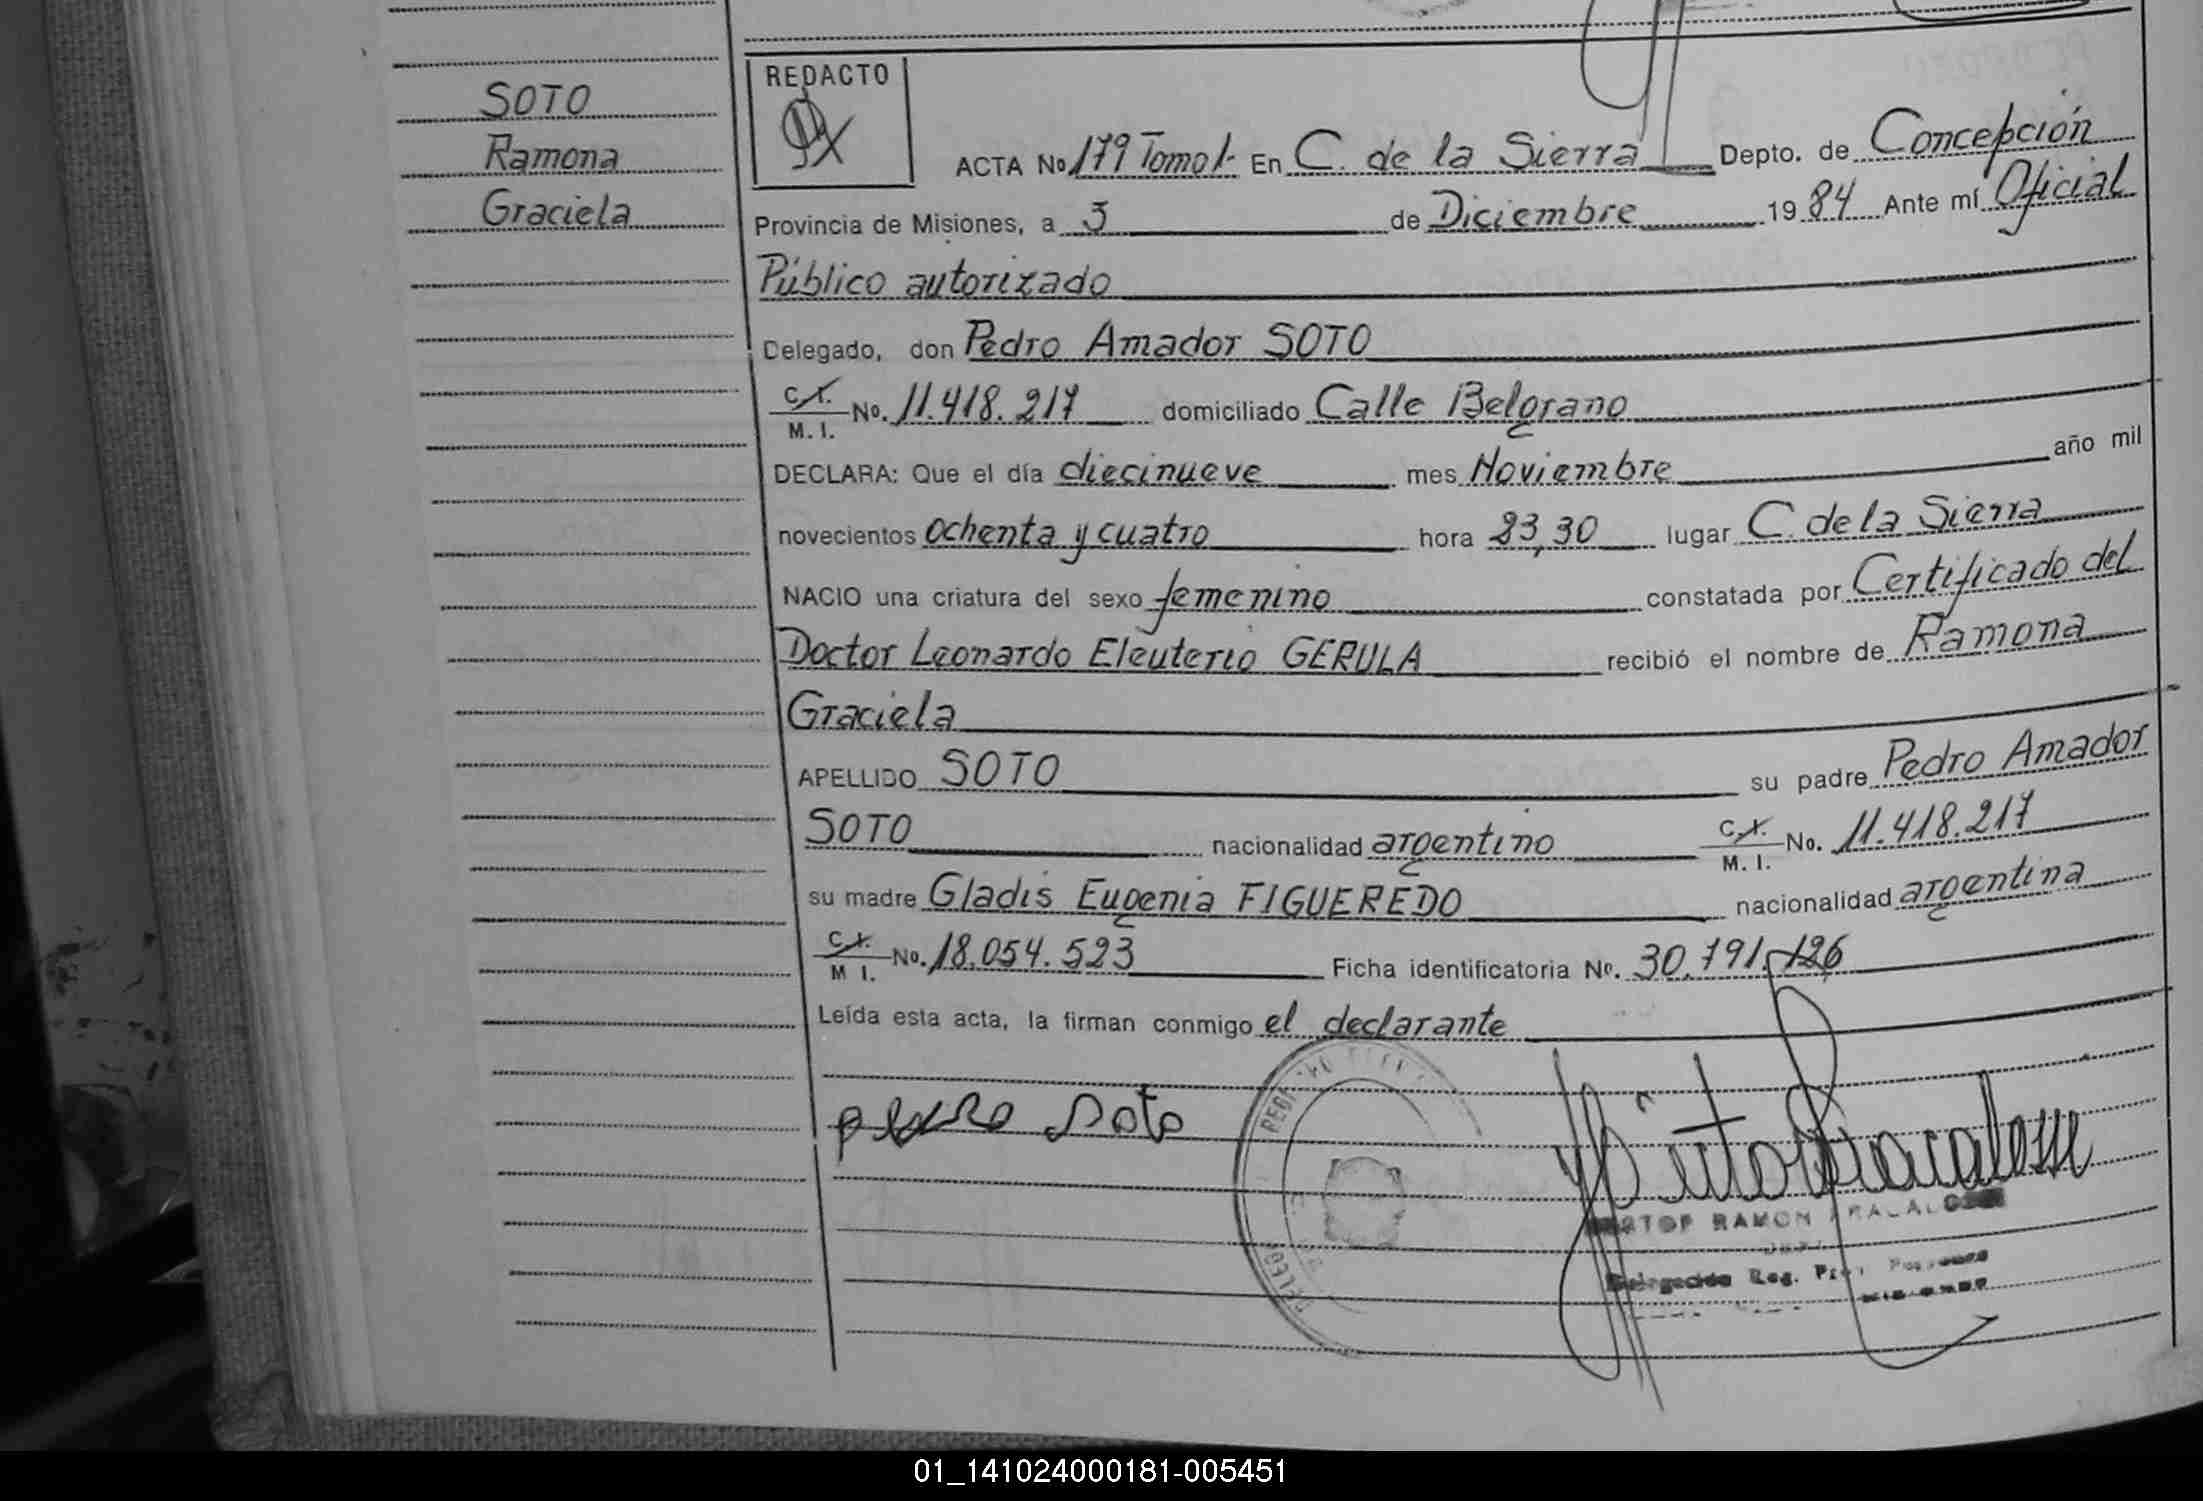 SOTO
Ramona
Graciela
REDACTO
ACTA No 179 Tomo 1- En C. de la Sierra Depto. de Concepción
Provincia de Misiones, a 3 de Diciembre 1984 Ante mí Oficial
Público autorizado
Delegado, don Pedro Amador SOTO
C.I. M. I. No. 11.418.217 domiciliado Calle Belgrano
DECLARA: Que el día diecinueve mes Noviembre año mil
novecientos ochenta y cuatro hora 23,30 lugar C. de la Sierra
NACIO una criatura del sexo femenino constatada por Certificado del
Doctor Leonardo Eleuterio GERULA recibió el nombre de Ramona
Graciela
APELLIDO SOTO su padre Pedro Amador
SOTO nacionalidad argentino C.I. M. I. No. 11.418.217
su madre Gladis Eugenia FIGUEREDO nacionalidad argentina
C.I. M I. No. 18.054.523 Ficha identificatoria No. 30.791.126
Leída esta acta, la firman conmigo el declarante
pedro Soto
RAMON
Delegación Reg.
01_141024000181-005451